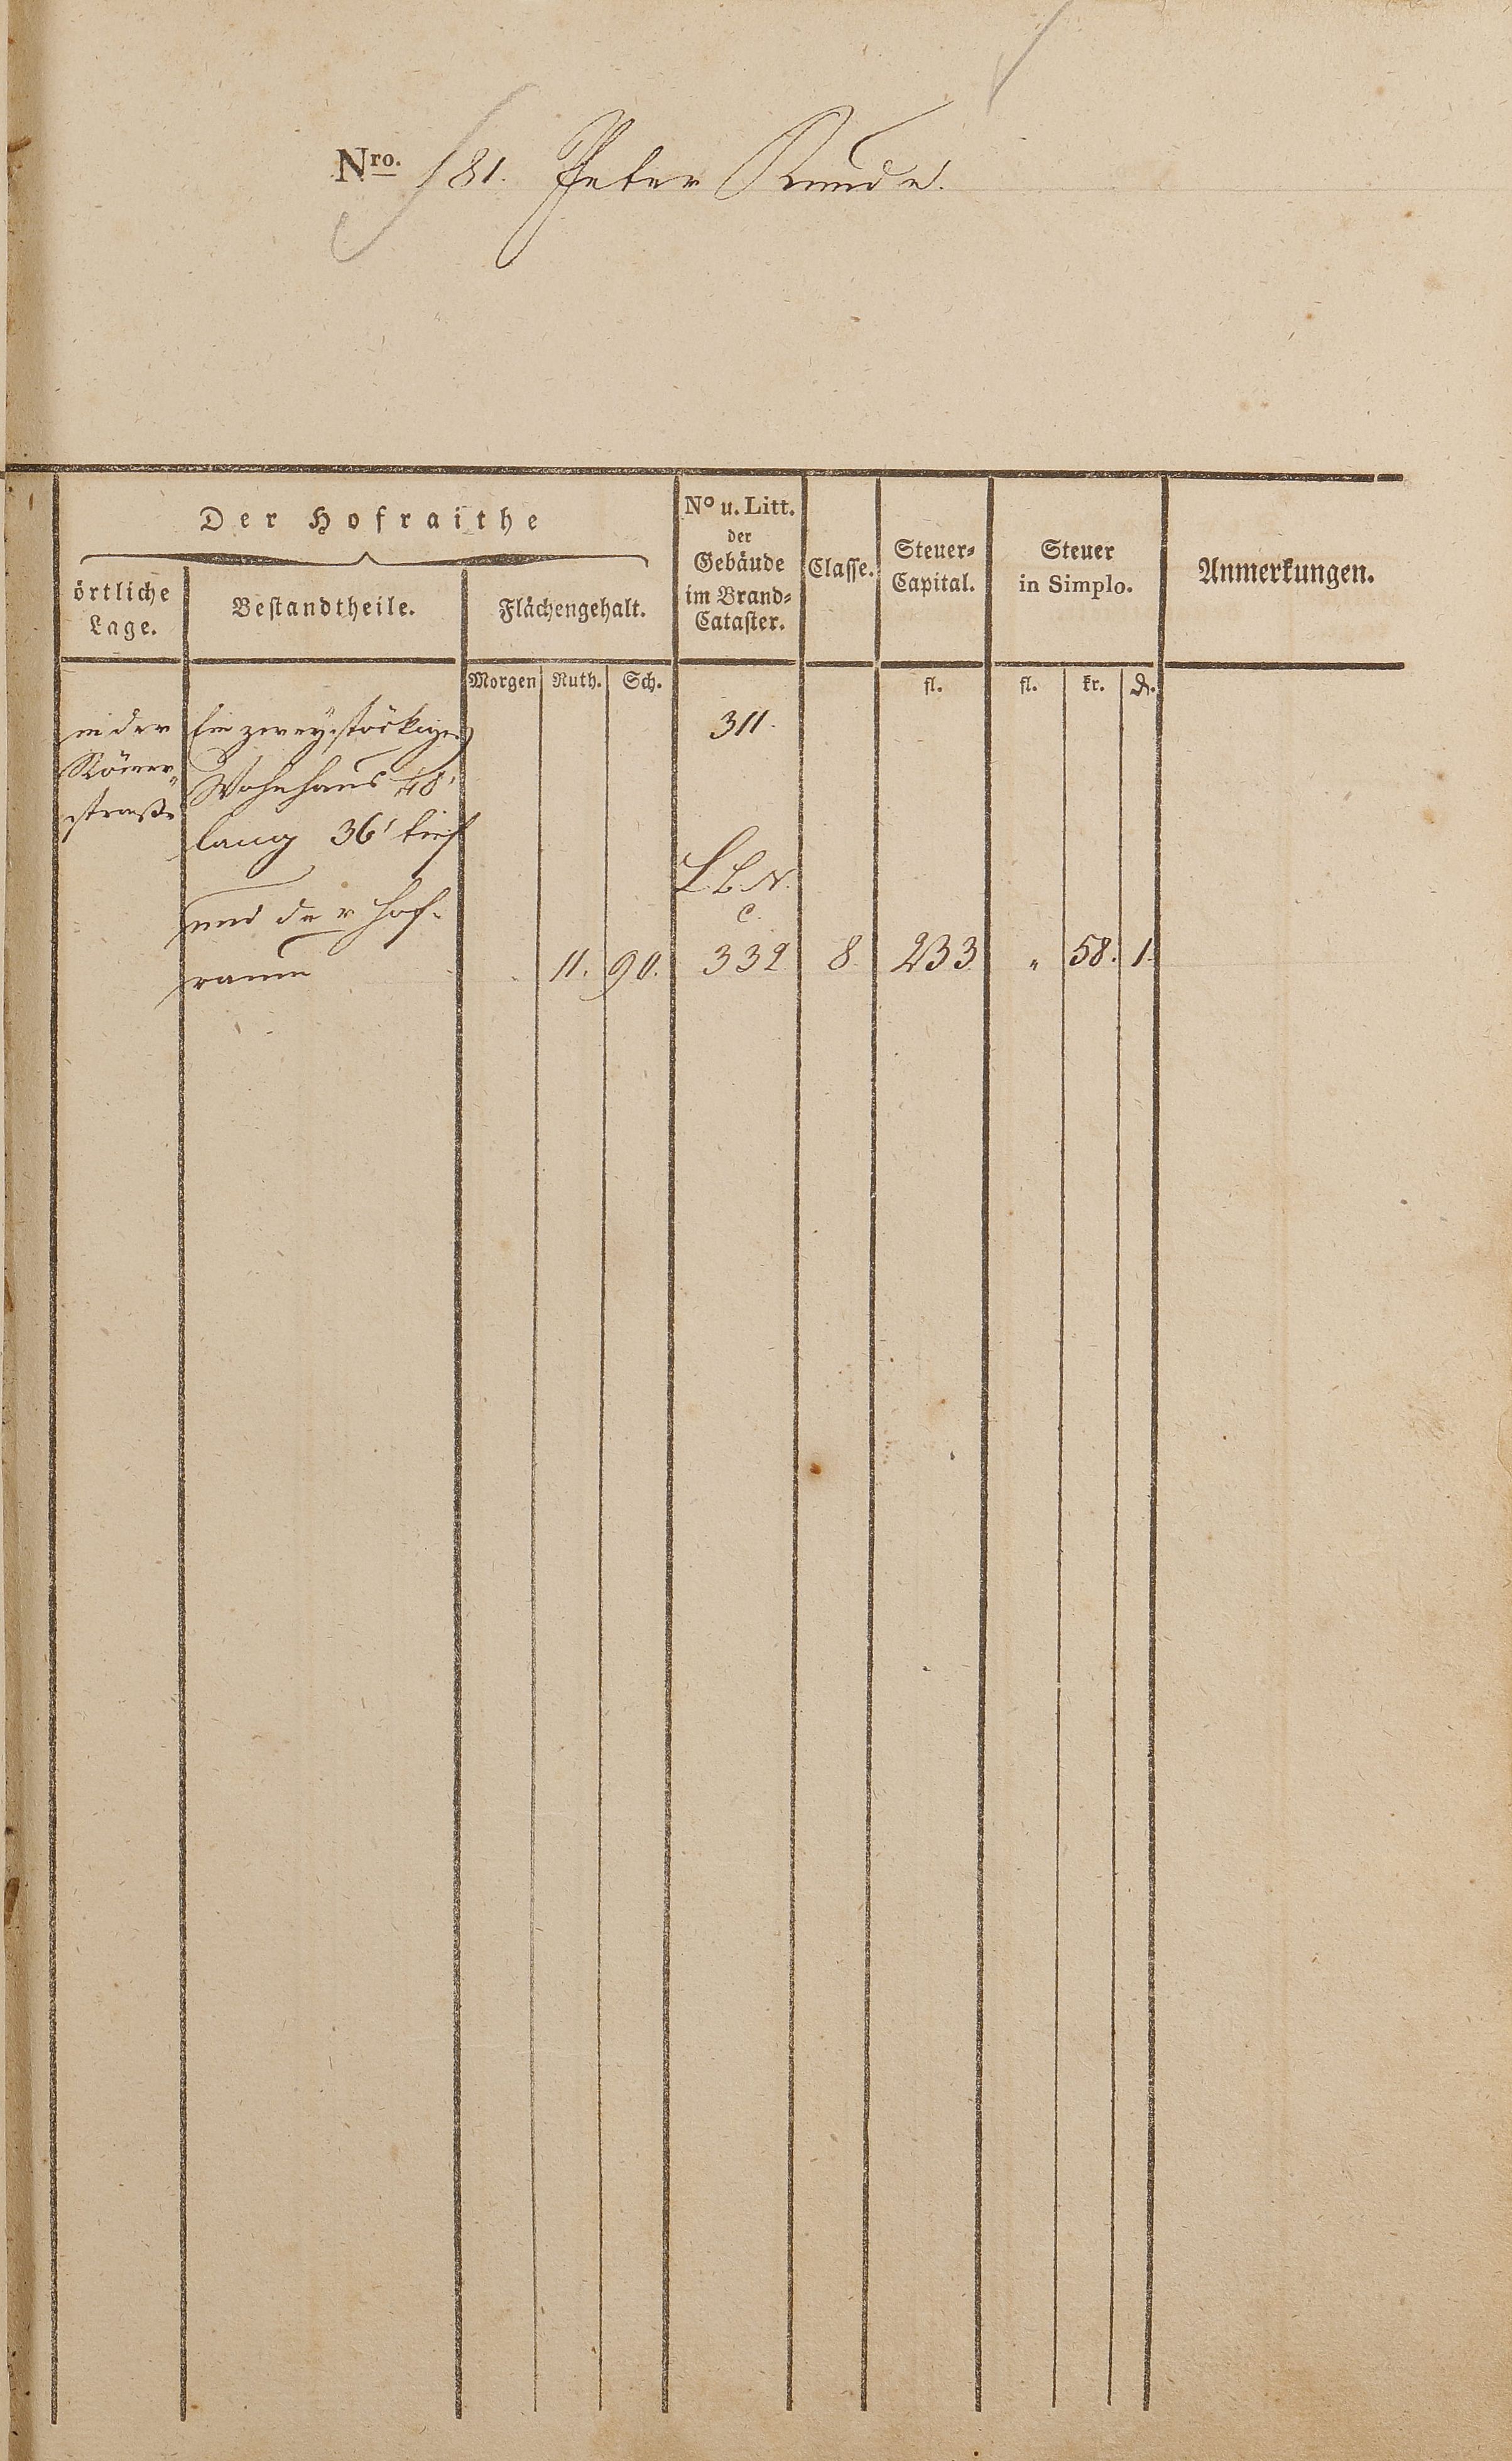 Nro. 181. Peter Runde.
Der Hofraithe
örtliche
Lage.
Bestandtheile.
Flächengehalt.
No u. Litt.
der
Gebäude
im Brand-
Cataster.
Classe.
Steuer-
Capital.
Steuer
in Simplo.
Anmerkungen.
Morgen Ruth. Sch. fl. fl. kr. d.
in der Ein zweystöckiges 311.
Römer-
straße
Wohnhaus 48'
lang 36' tief
LbN.
c.
und der Hof-
raum 11. 90. 332 8. 233 " 58. 1.